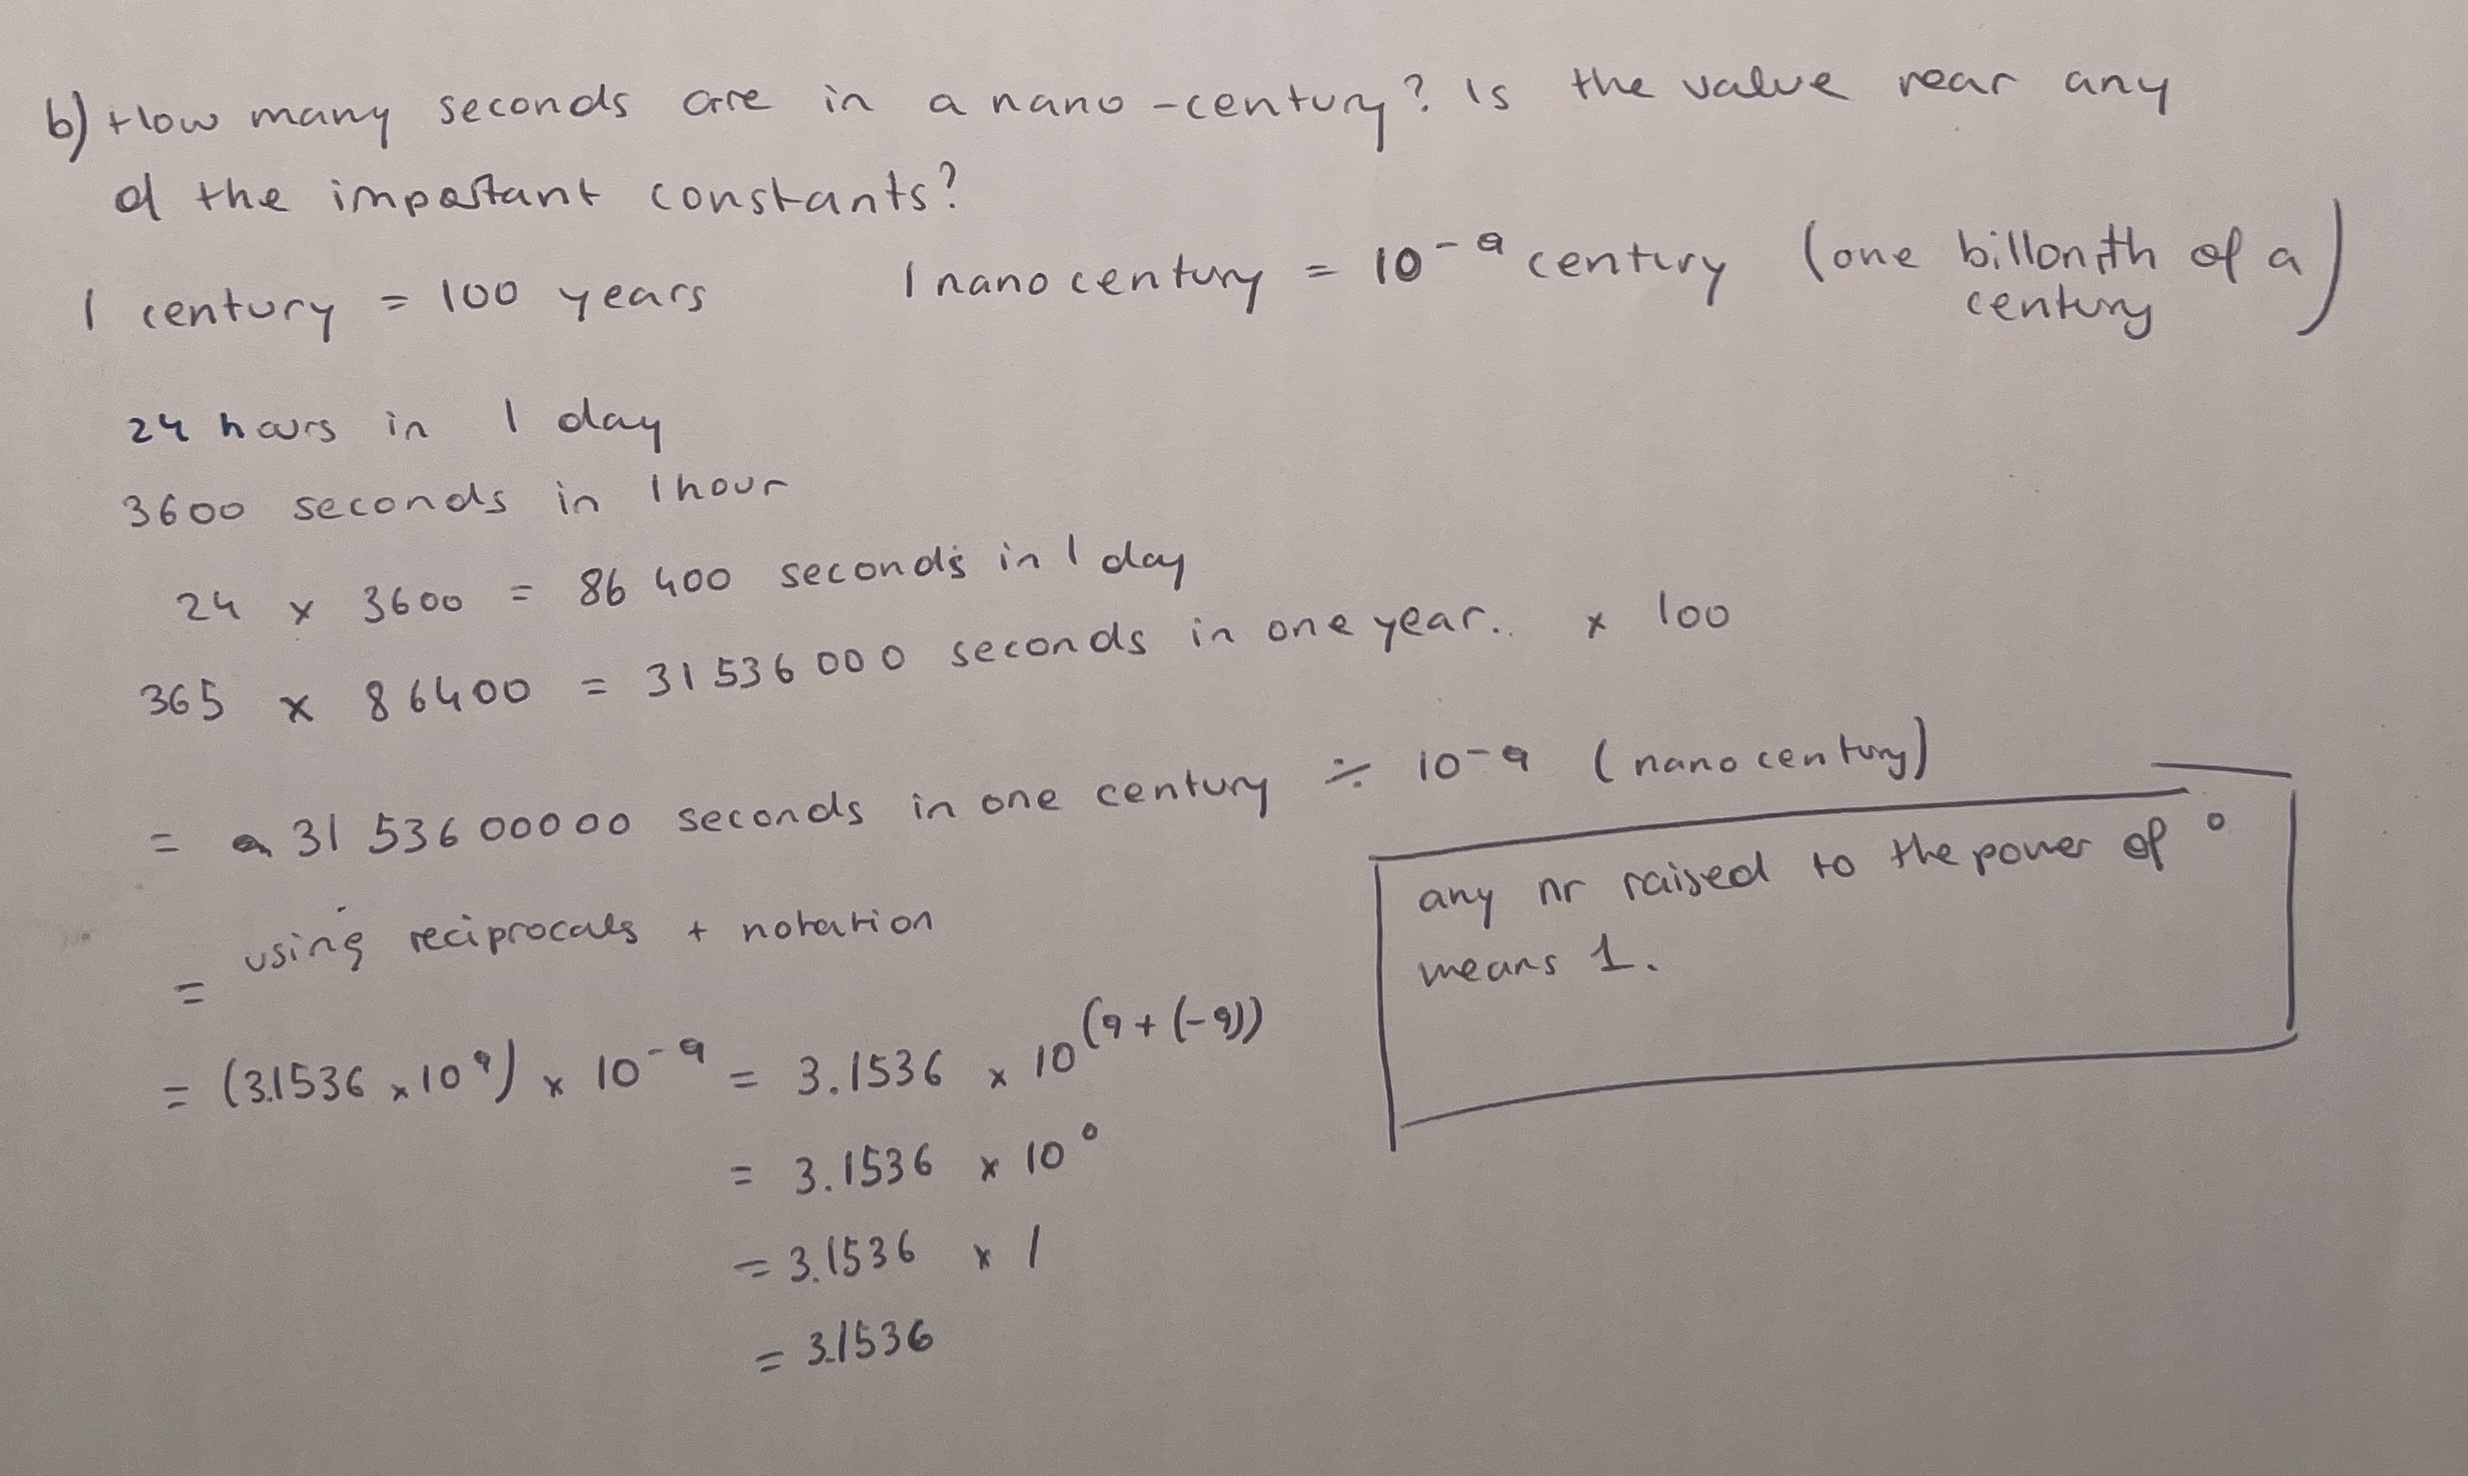 b) How many seconds are in a nano-century? Is the value near any
of the important constants?
1 century = 100 years 1 nano century = 10⁻⁹ century (one billonith of a century)
24 hours in 1 day
3600 seconds in 1 hour
24 x 3600 = 86 400 seconds in 1 day
365 x 86400 = 31 536 000 seconds in one year.. x 100
= 31 536 00000 seconds in one century ÷ 10⁻⁹ (nano century)
= using reciprocals + notation
any nr raised to the power of 0
means 1.
= (3.1536 x 10⁹) x 10⁻⁹ = 3.1536 x 10⁽⁹⁺⁽⁻⁹⁾⁾
= 3.1536 x 10⁰
= 3.1536 x 1
= 3.1536